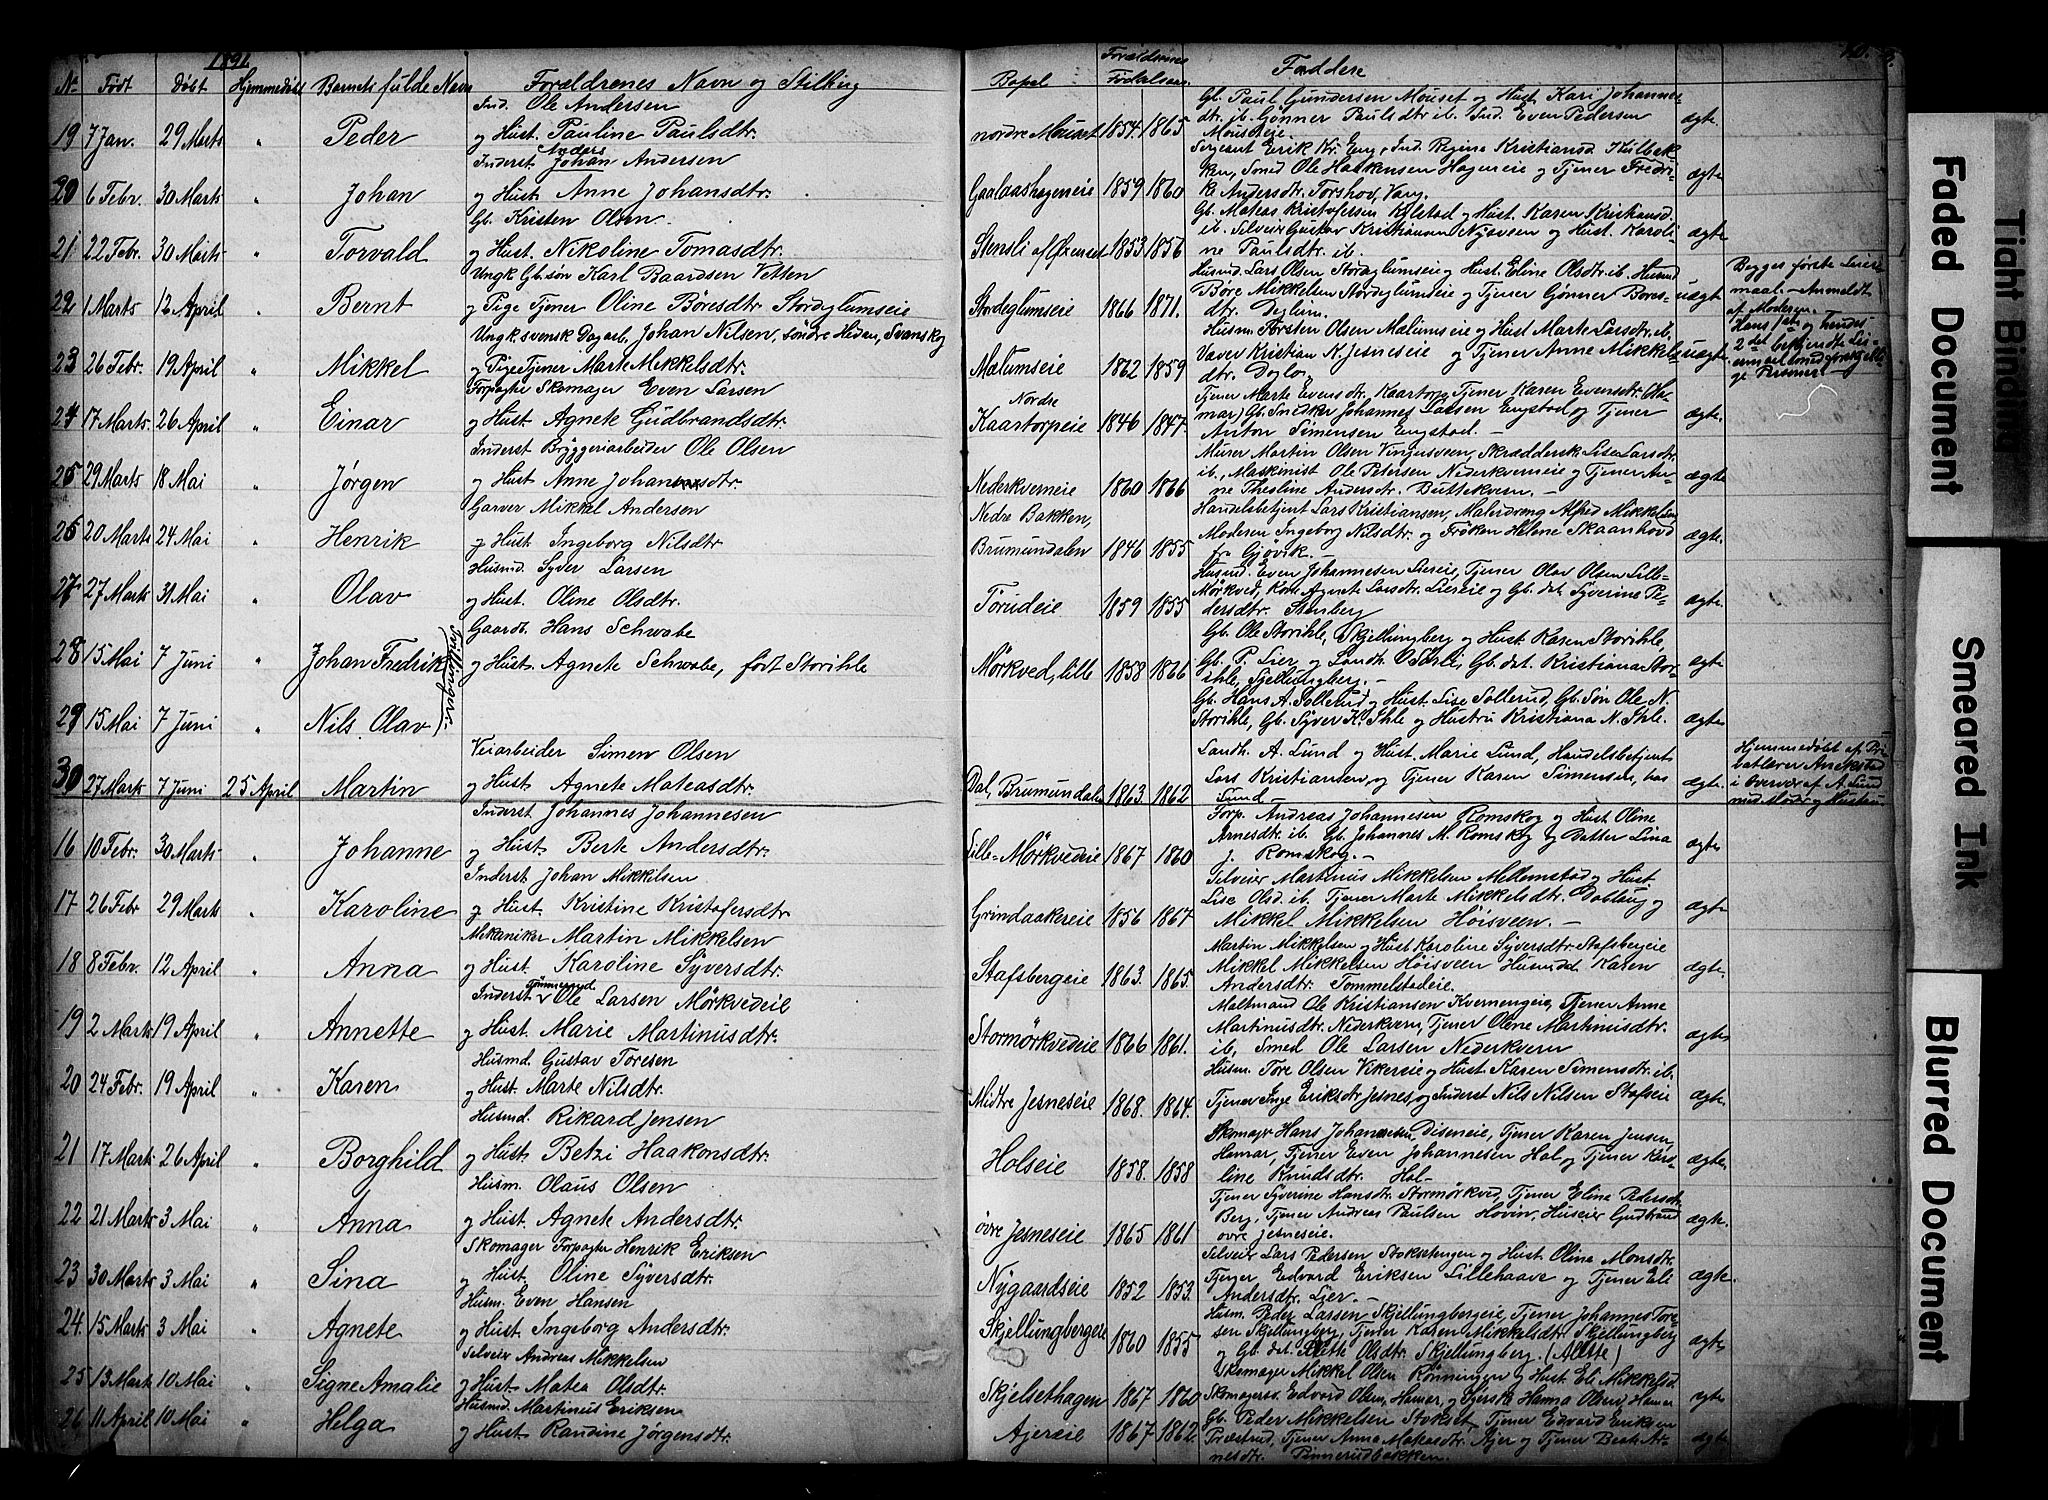 1891.
No Født Døbt Hjemmedøbt Barnets fulde Navn Forældrenes Navn og Stilling
Bopæl Forældrenes Fødselsaar. Faddere
19 7 Jan. 29 Marts " Peder Ind. Ole Andersen
og Hust. Pauline Paulsdtr.
nordre Mouset 1854. 1865. ægte.
Gb. Paul Gundersen Mouset og Hust. Kari Johannes-
dtr. ib. Gønner Paulsdtr ib. Ind. Even Pedersen
Mouseteie.
20 6 Febr. 30 Marts " Johan Inderst. Anders Johan Andersen
og Hust. Anne Johansdtr.
Gaalaashageneie 1859 1860 ægte
Sergeant Erik Kr. Eng, Ind. Regine Kristiansd.
ken, Smed Ole Haakensen Hageneie og Tjener Fredri-
ke Andersdtr. Torshov, Vang.
21 22 Febr. 30 Marts " Torvald Gb. Kristen Olsen
og Hust. Nikoline Tomasdtr.
Stensli af 1853 1856 ægte
Gb. Mateas Kristofersen Kilstad og Hust. Karen Kristiansd.
ib. Selveier Gustav Kristiansen Nysveen og Hust. Karoli-
ne Paulsdtr. ib.
22 1 Marts 12 April " Bernt Ungk. Gb.søn Karl Baardsen Vetten
og Pige Tjener Oline Børesdtr Stordeglumseie
Stordeglumseie 1866 1871. uægt
Husmd. Lars Olsen Stordeglumseie og Hust. Eline Olsdtr. ib. Husmd
Børe Mikkelsen Stordeglumseie og Tjener Gønner Børes-
dtr. Deglum.
Begges første Leier-
maal. - Anmeldt
af Moderen.
23 26 Febr. 19 April " Mikkel Ungk. svensk Dagarb. Johan Nilsen, søndre Heden, Svansky
og Pige Tjener Marte Mikkelsdtr.
Mælumseie 1862 1859 uægte
Husm. Torsten Olsen Mælumseie og Hust Marte Larsdtr. ib.
Væver Kristian K. Jesneseie og Tjener Anne Mikkels-
dtr.
Hans 1ste og hendes
2det bekjendte Lei-
ermaal med forskjelli-
ge Personer.
24 17 Marts. 26 April " Einar Forpagter Skomager Even Larsen
og Hust. Agnete Gudbrandsdtr.
Nordre
Kaastorpeie 1846 1847. ægte.
Tjener Marte Evensdtr. Kaatorp, Tjener Karen Evensdtr. (Ha-
mar) Gb. Snedker Johannes Larsen Engstad og Tjener
Anton Simensen Engstad. -
25 29 Marts 18 Mai " Jørgen Inderst Bryggeriarbeider Ole Olsen
og Hust. Anne Johannesdtr.
Nederkverneie 1860 1866 ægte
Murer Martin Olsen Vingusveen, Skræddersk. Lise Larsdtr.
ib., Maskinist Ole Petersen Nederkverneie og Tjener An-
ne Thesline Andersdtr. Buttekvern. -
26 20 Marts 24 Mai " Henrik Garver Mikkel Andersen
og Hust. Ingeborg Nilsdtr.
Nedre Bakken,
Brumundalen 1846 1855 ægte.
Handelsbetjent Lars Kristiansen, Malerdreng Alfred Mikkelsen
Moderen Ingeborg Nilsdtr. og Frøken Helene Skaanhovd
fr. Gjøvik. -
27 27 Marts 31 Mai " Olav Husmd. Syver Larsen
og Hust. Oline Olsdtr.
Torudeie 1859 1855 ægte.
Husmd. Even Johannesen Liereie, Tjener Olav Olsen Lille-
Mørkved, Kone Agnete Larsdtr. Liereie og Gb. dat. Syverine Pe-
dersdtr. Stenberg
28 15 Mai 7 Juni " Johan Fredrik Gaardb. Hans Schwabe
og Hust. Agnete Schwabe, født Storihle
Tvillinger.
Mørkved, lille 1858 1866 ægte.
Gb. Ole Storihle, Skjellungberg og Hust. Karen Storihle,
Gb. P. Lier og Landh. O. Sørli, Gb. dat. Kristiana Stor-
ihle, Sjellungberg. -
29 15 Mai 7 Juni " Nils Olav ægte
Gb. Hans A. Sollerud og Hust. Lise Sollerud, Gb. Søn Ole N.
Storihle, Gb. Syver K. Ihle og Hustru Kristiana N. Ihle.
30 27 Marts 7 Juni 25 April Martin Veiarbeider Simen Olsen
og Hust. Agnete Mateasdtr.
Dal, Brumundalen 1863. 1862 ægte.
Landh. A. Lund og Hust. Marie Lund, Handelsbetjent
Lars Kristiansen, og Tjener Karen Simensen, hos
Lund -
Hjemmedøbt af Pri-
vatlærer
i Overvær af A. Lund
med Moder og Hustru
16 10 Febr. 30 Marts " Johanne Inderst Johannes Johannesen
og Hust. Berte Andersdtr.
Lille-Mørkvedeie 1867 1860 ægte
Forp. Andreas Johannesen Romskog og Hust. Oline
Arnesdtr. ib. Gb. Johannes M. Romskog og Datter Lina
J. Romskog. -
17 26 Febr 29 Marts " Karoline Inderst Johan Mikkelsen
og Hust. Kristine Kristofersdtr
Grindaakereie 1856 1867 ægte
Selveier Martinus Mikkelsen Mellemstad og Hust.
Lise Olsd. ib. Tjener Marte Mikkelsdtr. Doblaug og
Mikkel Mikkelsen Høisveen. -
18 8 Febr. 12 April " Anna Mekaniker Martin Mikkelsen
og Hust. Karoline Syversdtr.
Stafsbergeie 1863. 1865. ægte.
Martin Mikkelsen og Hust Karoline Syversdtr. Stafsbergeie
Mikkel Mikkelsen Høisveen Husmdd. Karen
Andersdtr. Tommelstadeie.
19 2 Marts 19 April " Annette Inderst Tømmermd Ole Larsen Mørkvedeie
og Hust. Marie Martinusdtr.
Stormørkvedeie 1866 1861. ægte
Meltmand Ole Kristiansen Kvernengeie, Tjener Anne
Martinusdtr. Nederkvern, Tjener Olene Martinusdtr.
ib, Smed Ole Larsen Nederkvern
20 24 Febr. 19 April " Karen Husmd. Gustav Toresen
og Hust. Marte Nilsdtr.
Midtre Jesneseie 1868. 1864. ægte.
Husm. Tore Olsen Vikereie og Hust. Karen Simensdtr. ib.
Tjener Inge Eriksdtr Jesnes, og Inderst Nils Nilsen Stafseie
21 17 Marts 26 April " Borghild Husmd. Rikard Jensen
og Hust. Betzi Haakonsdtr.
Holseie 1858. 1858 ægte.
Skomager Hans Johannesen Diseneie, Tjener Karen Jensen,
Hamar, Tjener Even Johannesen Hol og Tjener Karo-
line Knudsdtr. Hol-
22 21 Marts 3 Mai " Anna Husm. Olaus Olsen
og Hust. Agnete Andersdtr.
øvre Jesneseie 1865 1861 ægte.
Tjener Syverine Hansdtr. Stormørkved, Tjener Eline Pedersdtr.
Berg, Tjener Andreas Paulsen Hovin, Huseier Gudbrand
øvre Jesneseie.
23 30 Marts 3 Mai " Sina Skomager Forpagter Henrik Eriksen
og Hust. Oline Syversdtr.
Nygaardseie 1852 1853. ægte.
Selveier Lars Pedersen Stoksetengen og Hust. Olina Monsdtr.
Tjener Edvard Eriksen Lillehaave og Tjener Eli
Andersdtr. Lier -
24. 15 Marts 3 Mai " Agnete Husm. Even Hansen
og Hust. Ingeborg Andersdtr.
Skjellungbergeie 1860 1855 ægte
Husm. Peder Larsen Skjellungbergeie, Tjener Johannes Tore-
sen Skjellungberg, Tjener Karen Mikkelsdtr. Skjellungberg
og Gb. dat. Olsdtr. Skjellungberg. (Alette)
25 13 Marts 10 Mai " Signe Amalie Selveier Andreas Mikkelsen
og Hust. Matea Olsdtr.
Skjelsethagen 1867 1860 ægte
Skomager Mikkel Olsen Rønningen og Hust. Eli Mikkelsd.
Skomagersv. Edvard Olsen, Hamar, og Hanna Olsen, Hamar
26 11 April 10 Mai " Helga Husmd. Martinus Eriksen
og Hust. Randine Jørgensdtr.
Ajereie 1867 1862. ægte.
Gb. Peder Mikkelsen Stokset, Tjener Edvard Eriksen
Præstrud, Tjener Anna Mateasdtr. Ajer og Tjener Berte Ar-
nesdtr. Finnerudbakken.
Tight Binding
Faded Document
Smeared Ink
Blurred Document